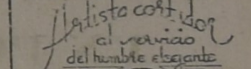 Artista cortador
al servicio
del hombre elegante